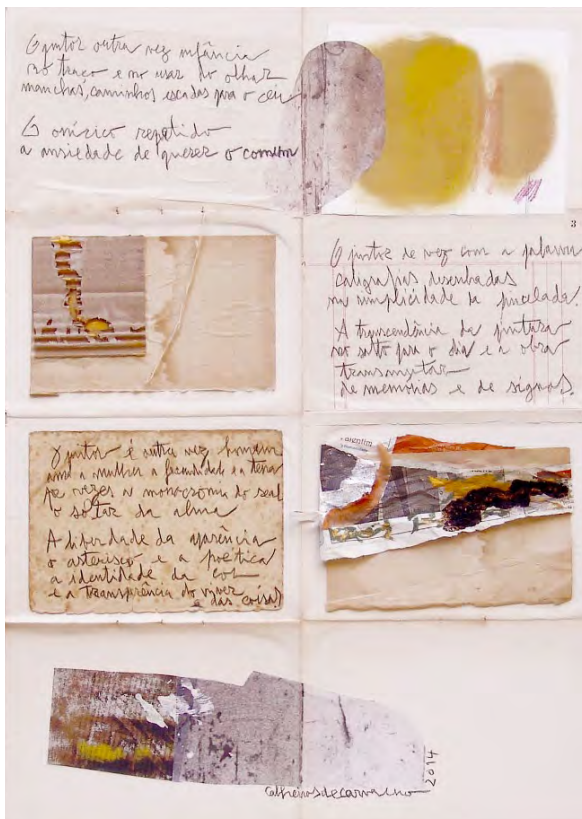 O pintor outra vez infância
no traço e no usar do olhar
manchas, caminhos escadas para o céu
O onírico repetido
a ansiedade de querer o comum
3
O pintor de vez com a palavra
caligrafias desenhadas
na simplicidade da pincelada.
A transcendência da pintura
no salto para o dia e a obra
transmutar
de memórias e de signos.
O pintor é outra vez homem
ama a mulher a fecundidade e a terra
por vezes a do seal
o soltar da alma
A liberdade da aparência
o asterisco e a poética
a identidade da cor
e a transprência do viver
e das coisas
2014